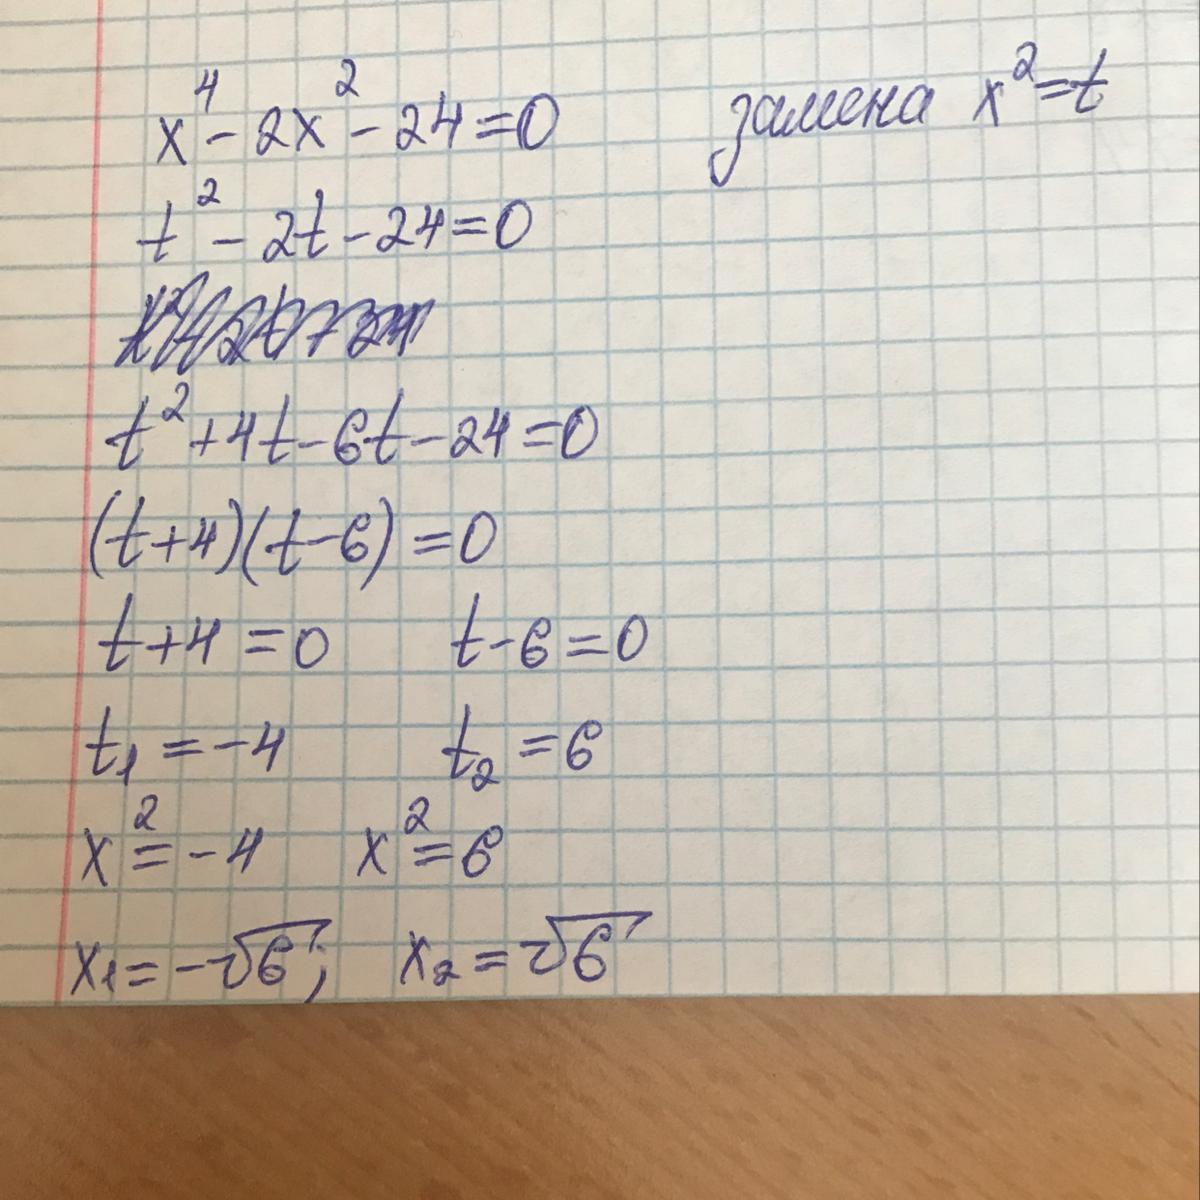 x⁴ - 2x² - 24 = 0 замена x² = t
t² - 2t - 24 = 0
t² + 4t - 6t - 24 = 0
(t+4)(t-6) = 0
t+4 = 0 t-6 = 0
t₁ = -4 t₂ = 6
x² = -4 x² = 6
x₁ = -√6; x₂ = √6